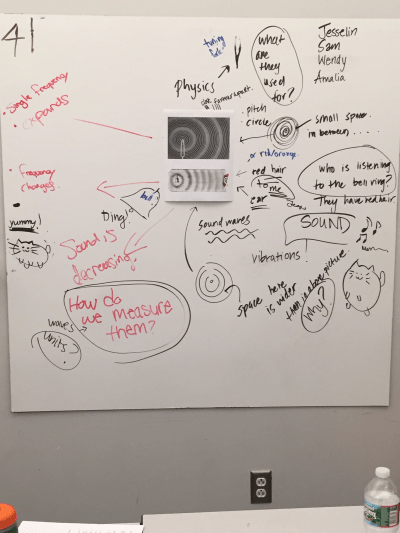 41
Jesselin
Sam
Wendy
Amalia
tuning
fork?
what
are
they
used
for?
Physics
pitch
circle
small space
in between ....
• Single frequency
• expands
• or red/orange
• red hair
to me
ear
who is listening
to the
They have red hair
• Frequency
changes
bell
Ding!
yummy!
sound waves
SOUND
vibrations
Sound is
decreasing
How do
we measure
them?
waves
units?
space here
is wider
than in above picture
Why?